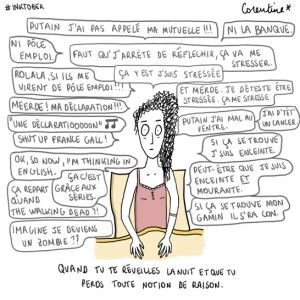 #INKTOBER
Corentine*
PUTAIN J'AI PAS APPELÉ MA MUTUELLE!!!
NI LA BANQUE.
NI PÔLE
EMPLOI.
FAUT QU'J'ARRÊTE DE RÉFLECHIR, ÇA VA ME
STRESSER.
ROLALA, SI ILS ME
VIRENT DE PÔLE EMPLOI!!!
ÇA Y EST J'SUIS STRESSÉE
ET MERDE. JE DÉTESTE ÊTRE
STRESSÉE. ÇA ME STRESSE
MEERDE! MA DÉCLARATION!!!
PUTAIN J'AI MAL AU
VENTRE.
J'AI P'TÊT
UN CANCER
"UNE DÉCLARATIOOOOON"
SHUT UP FRANCE GALL!
SI ÇA SE TROUVE
J'SUIS ENCEINTE.
OK, SO NOW, I'M THINKING IN
ENGLISH.
ÇA C'EST
GRÂCE AUX
SÉRIES.
PEUT-ÊTRE QUE JE SUIS
ENCEINTE ET
MOURANTE.
ÇA REPART
QUAND
THE WALKING DEAD?!
SI ÇA SE TROUVE MON
GAMIN IL S'RA CON.
IMAGINE JE DEVIENS
UN ZOMBIE??
QUAND TU TE RÉVEILLES LA NUIT ET QUE TU
PERDS TOUTE NOTION DE RAISON.